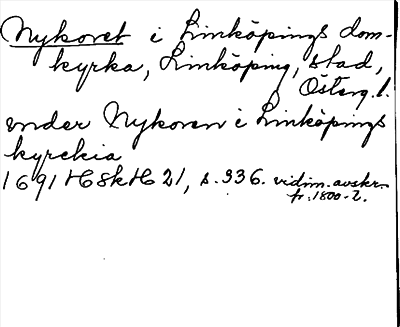 Nykoret i Linköpings dom-
kyrka, Linköping, stad,
Österg. l.
vnder Nykoren i Linköpings
kyrckia
1691 HSkH 21, s. 336. vidim. avskr.
fr. 1800-t.